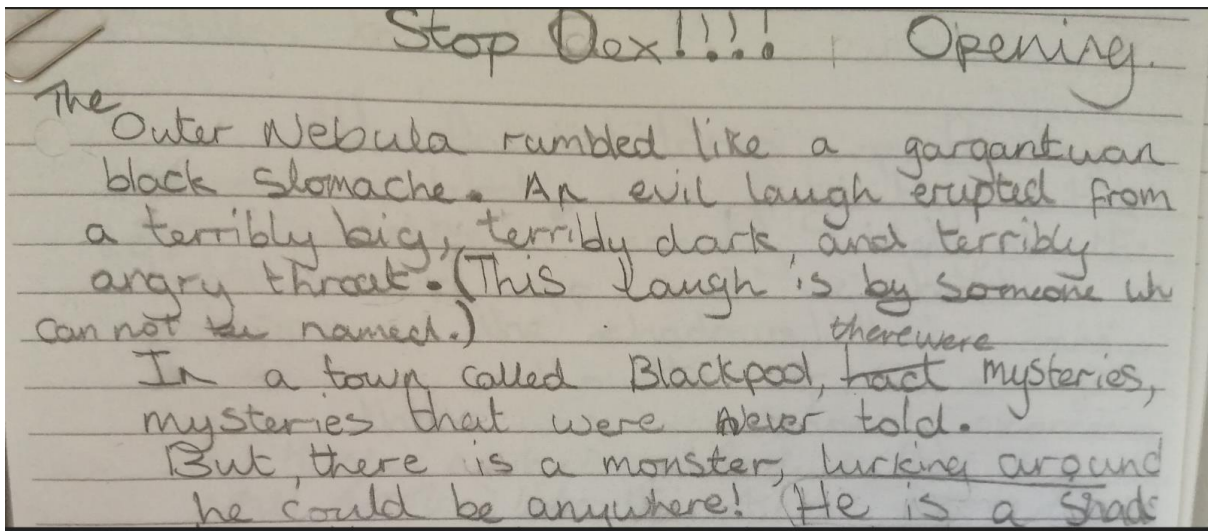 Stop Dex!!!! Opening.
The Outer Nebula rumbled like a gargantuan
black stomache. An evil laugh erupted from
a terribly big, terribly dark, and terribly
angry throat. (This laugh is by someone wh
can not be named.)
there were
In a town called Blackpool, had mysteries,
mysteries that were never told.
But, there is a monster, lurking around
he could be anywhere! (He is a shado